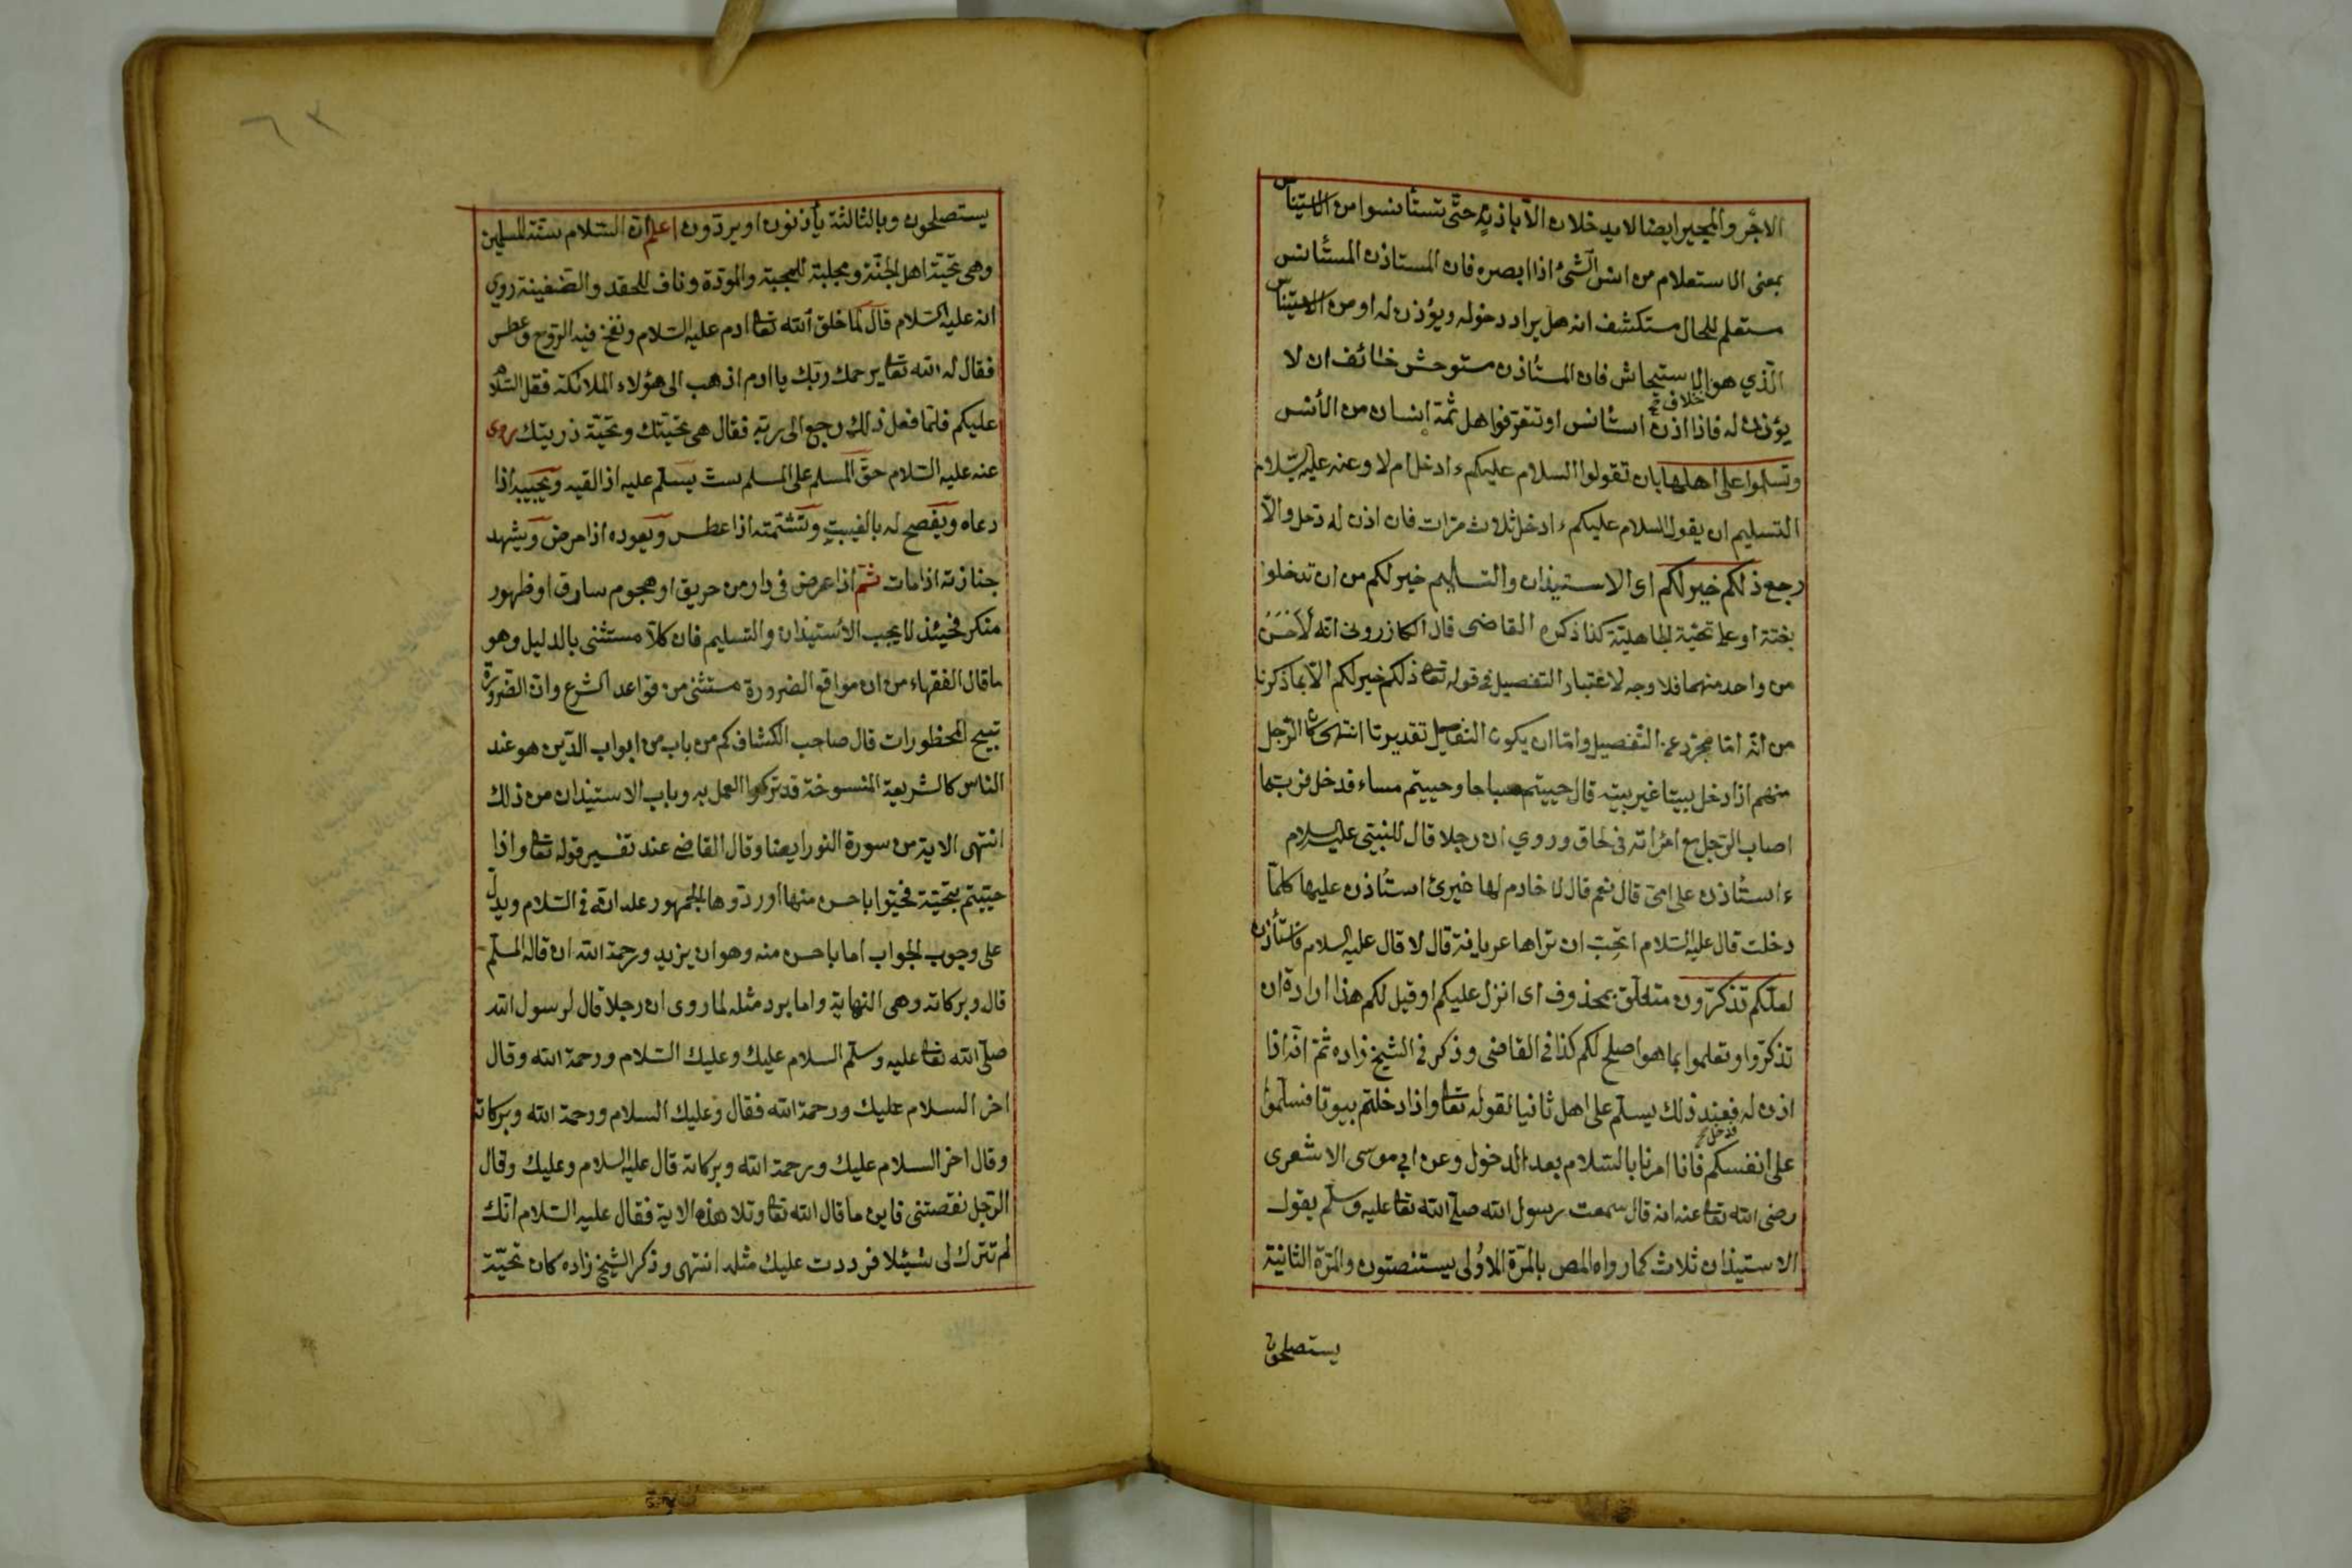 الاجر والمجير ايضا لا يدخلان الا باذنه حتى تستأنسوا من الاستيناس
بمعنى الاستعلام من انس الشئ اذا ابصره فان المستاذن المستأنس
مستعلم للحال مستكشف انه هل يراد دخوله ويؤذن له او من الاستيناس
الذي هو خلاف الاستيحاش فان المستأذن مستوحش خائف ان لا
يؤذن له فاذا اذن استأنس او تتعرفوا هل ثمة انسان من الأنس
وتسلموا على اهلها بان تقولوا السلام عليكم ء ادخل ام لا وعنه عليه السلام
التسليم ان يقول السلام عليكم ء ادخل ثلاث مرات فان اذن له دخل والا
رجع ذلكم خير لكم اى الاستيذان والتسليم خير لكم من ان تدخلوا
بغتة او على تحية الجاهلية كذا ذكره القاضى قال الكازرونى انه لأحسن
من واحد منهما فلا وجه لاعتبار التفصيل فى قوله تعا ذلكم خير لكم الا بما ذكرنا
من انه اما مجرد عن التفصيل واما ان يكون التفاصيل تقديرتا انتهى كان الرجل
منهم اذا دخل بيتا غير بيته قال حييتم صباحا وحييتم مساء فدخل فربتما
اصاب الرجل مع امرأته فى لحاف وروي ان رجلا قال للنبي عليه السلام
ء استأذن على امى قال نعم قال لا خادم لها غيرى استأذن عليها كلما
دخلت قال عليه السلام اتحب ان تراها عريانة قال لا قال عليه السلام فاستأذن
لعلكم تذكرون متعلق بمحذوف اى انزل عليكم او قيل لكم هذا ارادة ان
تذكروا وتعلموا بما هو اصلح لكم كذا فى القاضى وذكر فى الشيخ زاده ثم انه اذا
اذن له فدخل فعند ذلك يسلم على اهل ثانيا لقوله تعا واذا دخلتم بيوتا فسلموا
على انفسكم فانا امرنا بالسلام بعد الدخول وعن ابي موسى الاشعرى
رضى الله تعا عنه انه قال سمعت رسول الله صلى الله تعا عليه وسلم يقول
الاستيذان ثلاث كما رواه المص بالمرة الاولى يستنصتون والمرة الثانية
يستصلحون
٦٢
يستصلحون وبالثالثة يأذنون او يردون اعلم ان السلام سنة المسلمين
وهى تحية اهل الجنة ومجلبة للمحبة والمودة وناف للحقد والضغينة روي
انه عليه السلام قال لما خلق الله تعا ادم عليه السلام ونفخ فيه الروح وعطس
فقال له الله تعا يرحمك ربك يا ادم اذهب الى هؤلاء الملائكة فقل السلام
عليكم فلما فعل ذلك رجع الى ربه فقال هى تحيتك وتحية ذريتك روى
عنه عليه السلام حق المسلم على المسلم ست يسلم عليه اذا لقيه ويجيبه اذا
دعاه وينصح له بالغيب وتشتمته اذا عطس ويعوده اذا مرض ويشهد
جنازته اذا مات ثم اذا عرض فى دار من حريق او هجوم سارق او ظهور
منكر فحينئذ لا يجب الاستيذان والتسليم فان كلا مستثنى بالدليل وهو
ما قال الفقهاء من ان مواقع الضرورة مستثنى من قواعد الشرع وان الضرورة
تبيح المحظورات قال صاحب الكشاف كم من باب من ابواب الدين هو عند
الناس كالشريعة المنسوخة قد تركوا العمل به وباب الاستيذان من ذلك
انتهى الاية من سورة النور ايضا وقال القاضى عند تفسير قوله تعا واذا
حييتم بتحية فحيوا باحسن منها او ردوها الجمهور على انه فى السلام ويدل
على وجوب الجواب اما باحسن منه وهو ان يزيد ورحمة الله ان قاله المسلم
قال وبركاته وهى النهاية واما يرد مثله لما روى ان رجلا قال لرسول الله
صلى الله تعا عليه وسلم السلام عليك وعليك السلام ورحمة الله وقال
اخر السلام عليك ورحمة الله فقال وعليك السلام ورحمة الله وبركاته
وقال اخر السلام عليك ورحمة الله وبركاته قال عليه السلام وعليك وقال
الرجل نقصتنى فاين ما قال الله تعا وتلا هذه الاية فقال عليه السلام انك
لم تترك لى شيئا فرددت عليك مثله انتهى وذكر الشيخ زاده كان تحية